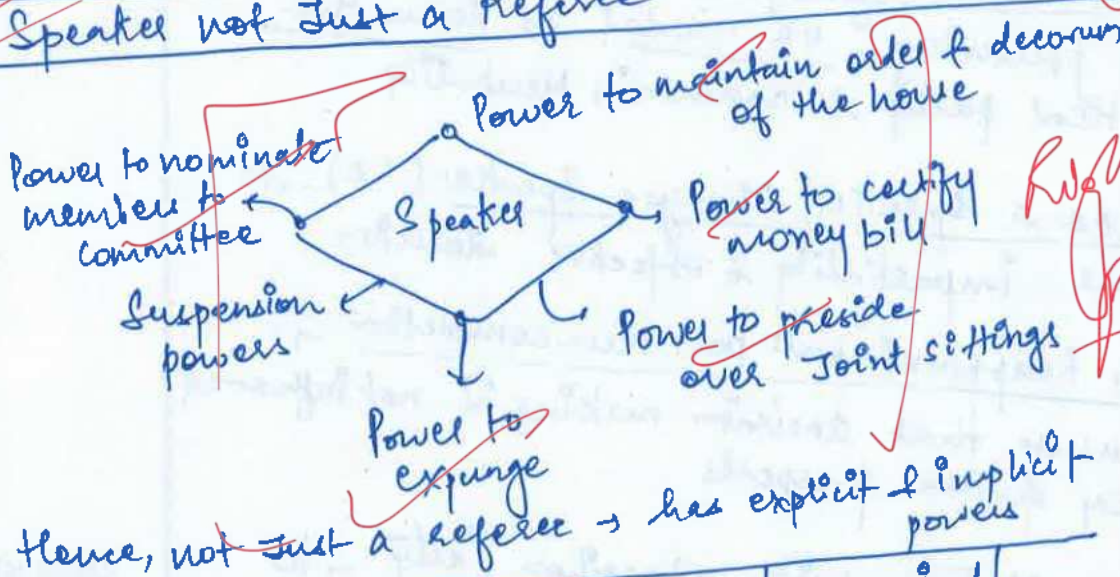 Speaker not Just a Refere
Power to maintain order & decorum
of the house
Power to nominate
members to
committee
Speaker
Power to certify
money bill
Suspension
powers
Power to preside
over Joint Sittings
Power to
expunge
Hence, not Just a referee → has explicit & implicit
powers